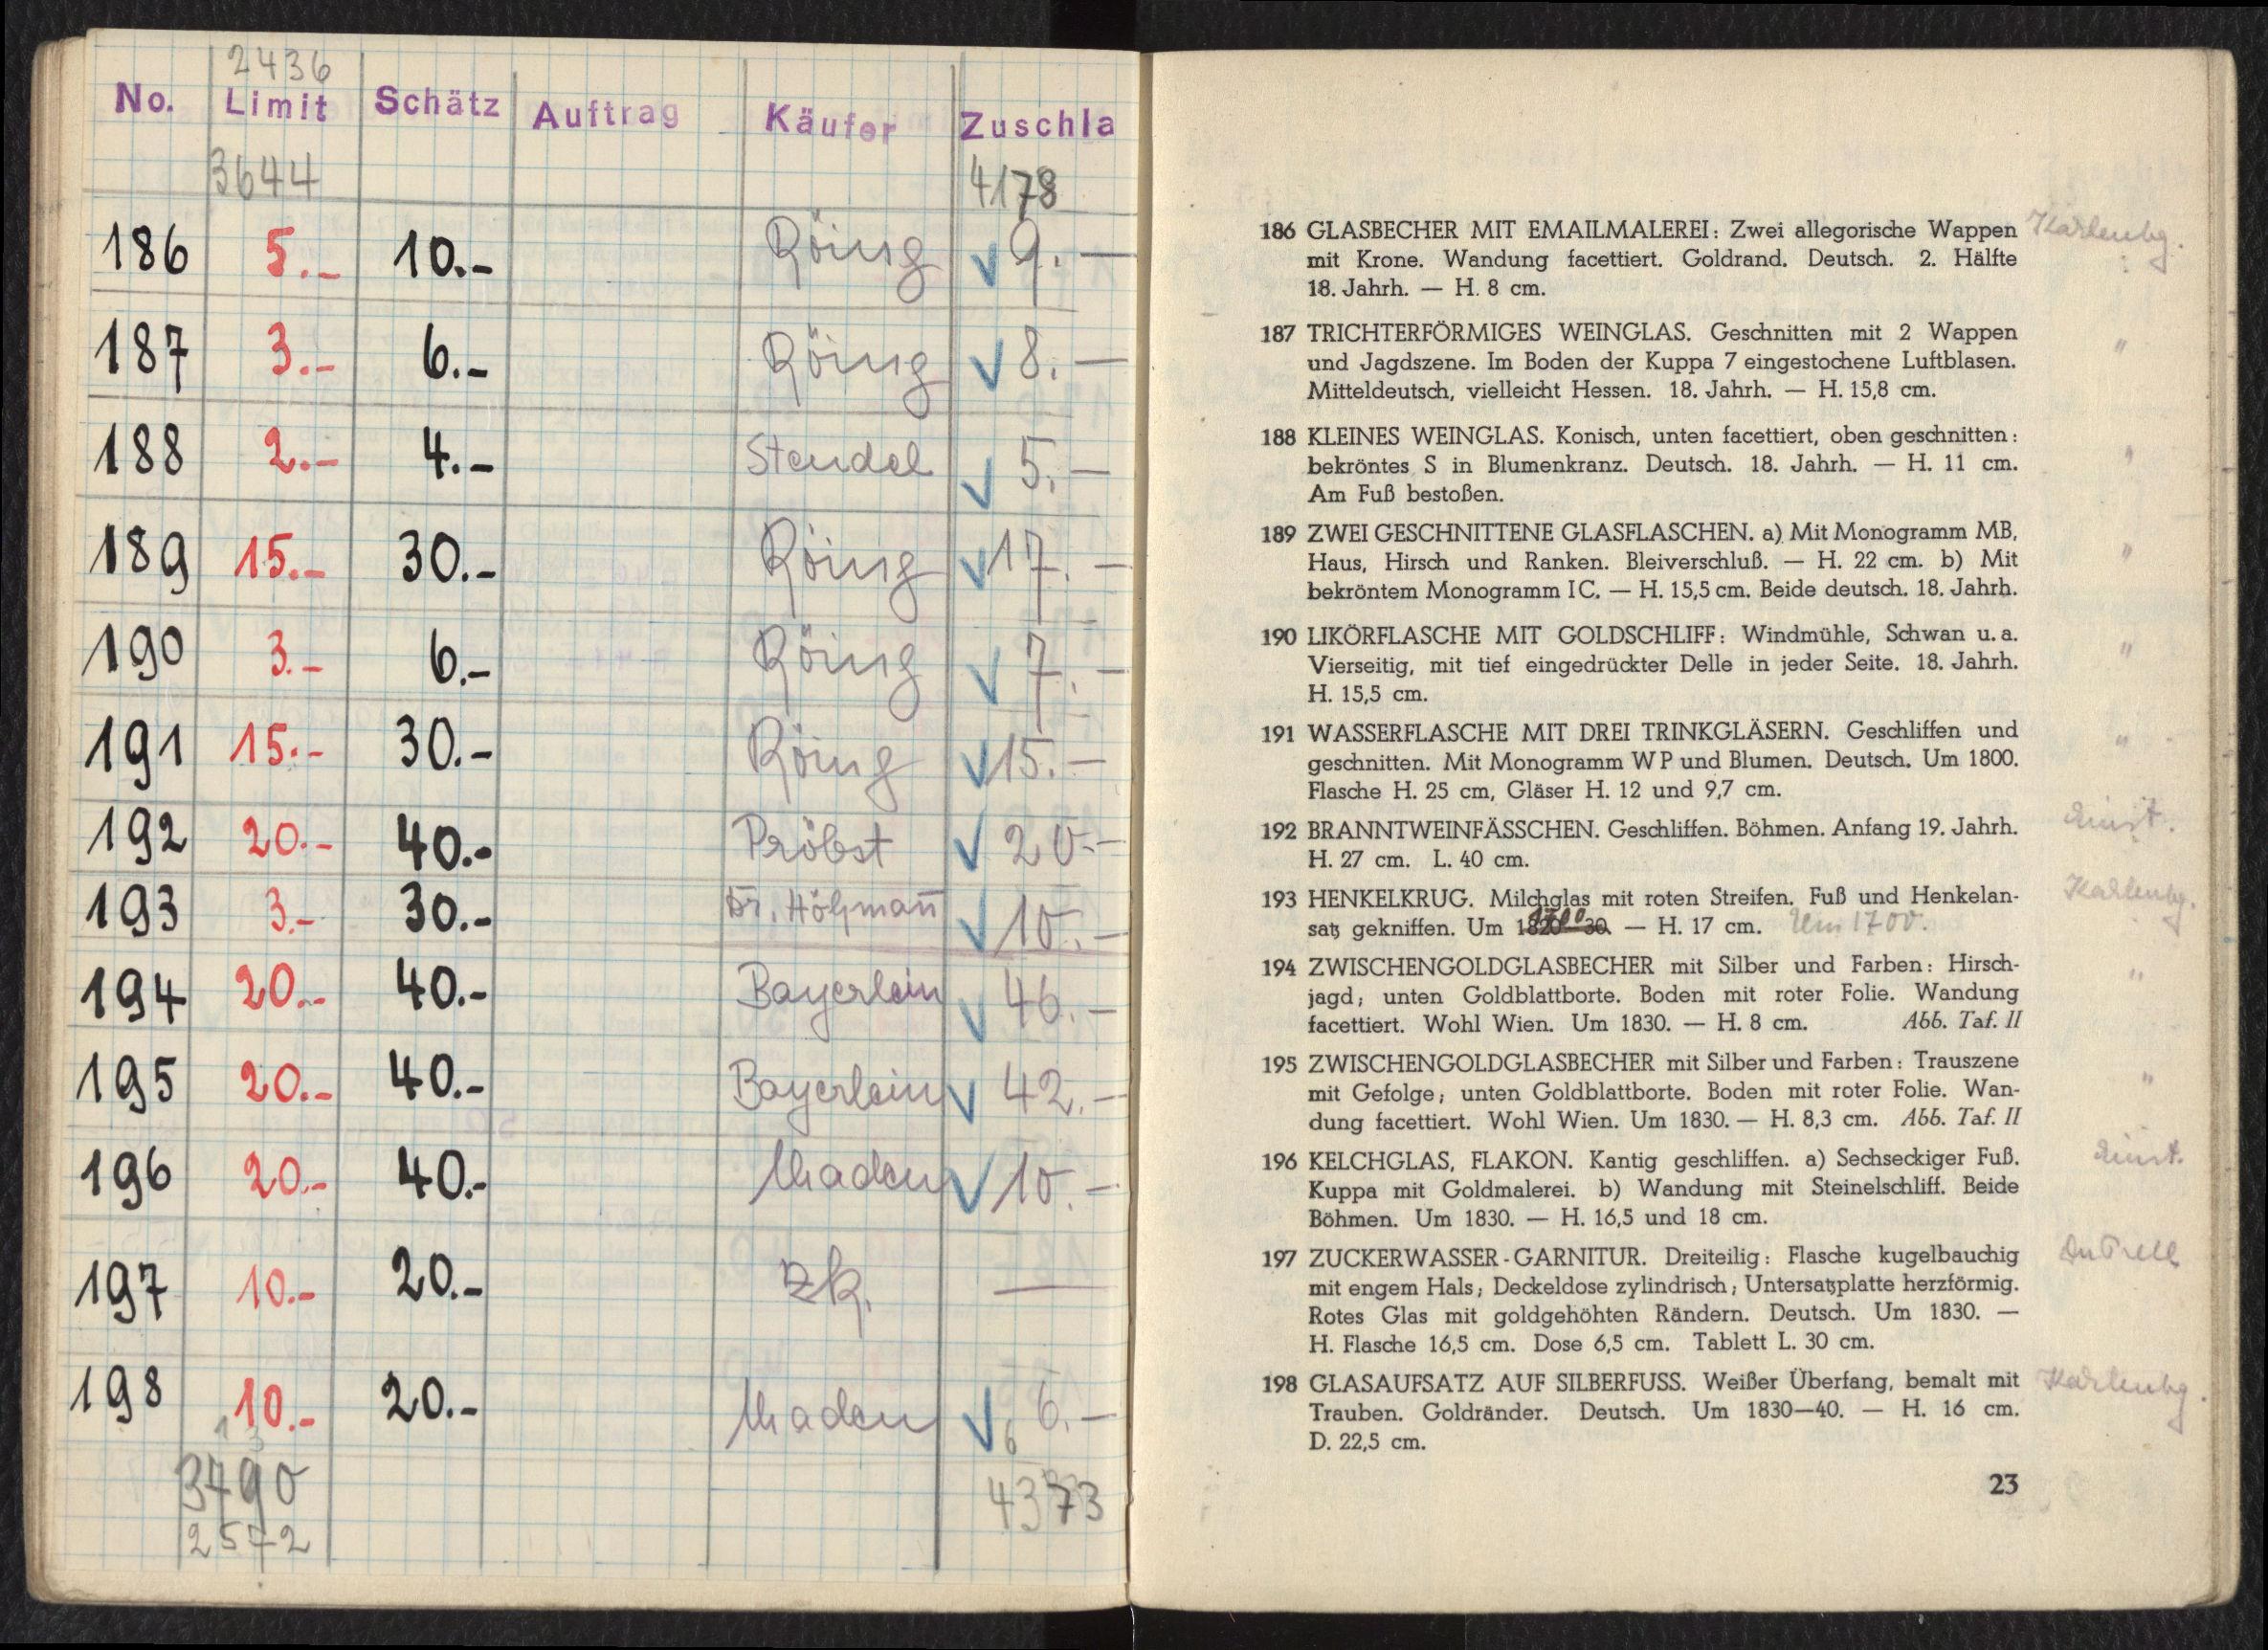 2436
No. Limit Schätz Auftrag Käufer Zuschla
3644 4178
186 5.- 10.- Röing √ 9.—
187 3.- 6.- Röing √ 8.—
188 2.- 4.- Stendel √ 5.—
189 15.- 30.- Röing √ 17.—
190 3.- 6.- Röing √ 7.—
191 15.- 30.- Röing √ 15.—
192 20.- 40.- Pröbst √ 20.—
193 3.- 30.- Dr. √ 10.—
194 20.- 40.- Bayerlein √ 46.—
195 20.- 40.- Bayerlein √ 42.—
196 20.- 40.- Maden √ 10.—
197 10.- 20.- zk. —
198 10.- 20.- Maden √ 6.—
3490 4373
2572
186 GLASBECHER MIT EMAILMALEREI: Zwei allegorische Wappen
mit Krone. Wandung facettiert. Goldrand. Deutsch. 2. Hälfte
18. Jahrh. — H. 8 cm.
187 TRICHTERFÖRMIGES WEINGLAS. Geschnitten mit 2 Wappen
"
und Jagdszene. Im Boden der Kuppa 7 eingestochene Luftblasen.
Mitteldeutsch, vielleicht Hessen. 18. Jahrh. — H. 15,8 cm.
188 KLEINES WEINGLAS. Konisch, unten facettiert, oben geschnitten:
"
bekröntes S in Blumenkranz. Deutsch. 18. Jahrh. — H. 11 cm.
Am Fuß bestoßen.
189 ZWEI GESCHNITTENE GLASFLASCHEN. a) Mit Monogramm MB,
"
Haus, Hirsch und Ranken. Bleiverschluß. — H. 22 cm. b) Mit
bekröntem Monogramm IC. — H. 15,5 cm. Beide deutsch. 18. Jahrh.
190 LIKÖRFLASCHE MIT GOLDSCHLIFF: Windmühle, Schwan u. a.
"
Vierseitig, mit tief eingedrückter Delle in jeder Seite. 18. Jahrh.
H. 15,5 cm.
191 WASSERFLASCHE MIT DREI TRINKGLÄSERN. Geschliffen und
"
geschnitten. Mit Monogramm W P und Blumen. Deutsch. Um 1800.
Flasche H. 25 cm, Gläser H. 12 und 9,7 cm.
192 BRANNTWEINFÄSSCHEN. Geschliffen. Böhmen. Anfang 19. Jahrh.
H. 27 cm. L. 40 cm.
193 HENKELKRUG. Milchglas mit roten Streifen. Fuß und Henkelan-
1700
satz gekniffen. Um 1820—30. — H. 17 cm. Um 1700.
194 ZWISCHENGOLDGLASBECHER mit Silber und Farben: Hirsch-
"
jagd; unten Goldblattborte. Boden mit roter Folie. Wandung
facettiert. Wohl Wien. Um 1830. — H. 8 cm. Abb. Taf. II
195 ZWISCHENGOLDGLASBECHER mit Silber und Farben: Trauszene
"
mit Gefolge; unten Goldblattborte. Boden mit roter Folie. Wan-
dung facettiert. Wohl Wien. Um 1830. — H. 8,3 cm. Abb. Taf. II
196 KELCHGLAS, FLAKON. Kantig geschliffen. a) Sechseckiger Fuß.
Kuppa mit Goldmalerei. b) Wandung mit Steinelschliff. Beide
Böhmen. Um 1830. — H. 16,5 und 18 cm.
197 ZUCKERWASSER-GARNITUR. Dreiteilig: Flasche kugelbauchig
mit engem Hals; Deckeldose zylindrisch; Untersatzplatte herzförmig.
Rotes Glas mit goldgehöhten Rändern. Deutsch. Um 1830. —
H. Flasche 16,5 cm. Dose 6,5 cm. Tablett L. 30 cm.
198 GLASAUFSATZ AUF SILBERFUSS. Weißer Überfang, bemalt mit
Trauben. Goldränder. Deutsch. Um 1830—40. — H. 16 cm.
D. 22,5 cm.
23